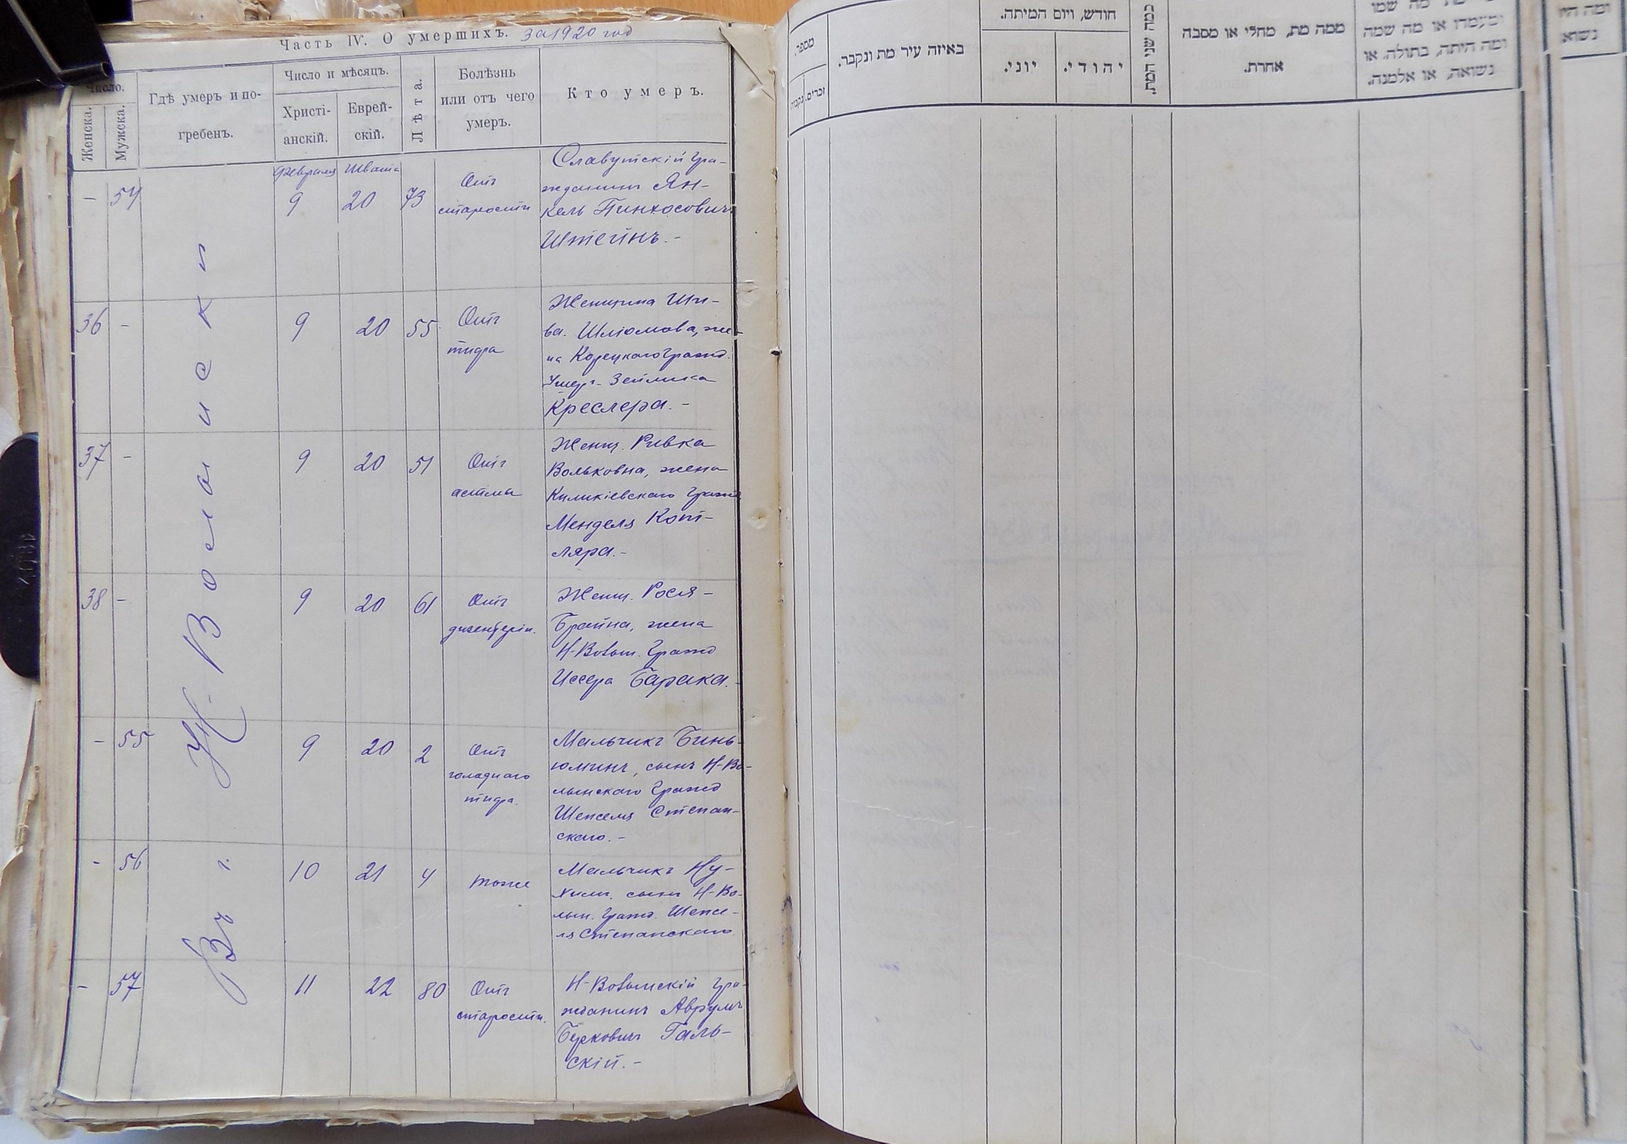 Часть IV. О умершихъ. за 1920 год
Число.
Женска.
Мужска.
Гдѣ умеръ и по-
гребенъ.
Число и мѣсяцъ.
Христі-
анскій.
Еврей-
скій.
Лѣта.
Болѣзнь
или отъ чего
умеръ.
Кто умеръ.
Въ г. Н-Волынски
Февраля Швата
- 54 9 20 73
Отъ
старости
Славутскій гра-
жданинъ Ян-
кель Пинхосовичъ
Штейнъ.-
36 - 9 20 55
Отъ
тифа
Женщина Ши-
ва Шлюмова, же-
на Корецкаго гражд.
Зейлика
Креслера.-
37 - 9 20 51
Отъ
астмы
Женщ. Ривка
Вольковна, жена
Киликіевскаго гражд
Менделя Кот-
ляра.-
38 - 9 20 61
Отъ
дизентеріи.
Женщ. Рося-
Брайна, жена
Н-Волын. гражд
Иссера Барака.-
- 55 9 20 2
Отъ
голоднаго
тифа.
Мальчикъ Бинь-
юминъ, сынъ Н-Во-
лынскаго гражд
Шепселя Степан-
скаго.-
- 56 10 21 4
тоже
Мальчикъ Ну-
химъ, сынъ Н-Во-
лын. гражд. Шепсе-
ля Степанскаго
- 57 11 22 80
Отъ
старости.
Н-Волынскій гра-
жданинъ Аврумъ
Берковичъ Галь-
скій.-
מספר.
זכרים.
נקבות
באיזה עיר מת ונקבר.
חודש, ויום המיתה.
יוני.
יהודי.
כמה שני המת.
ממה מת, מחלי או מסבה
אחרת.
ומה היתה, בתולה. או
נשואה, או אלמנה.